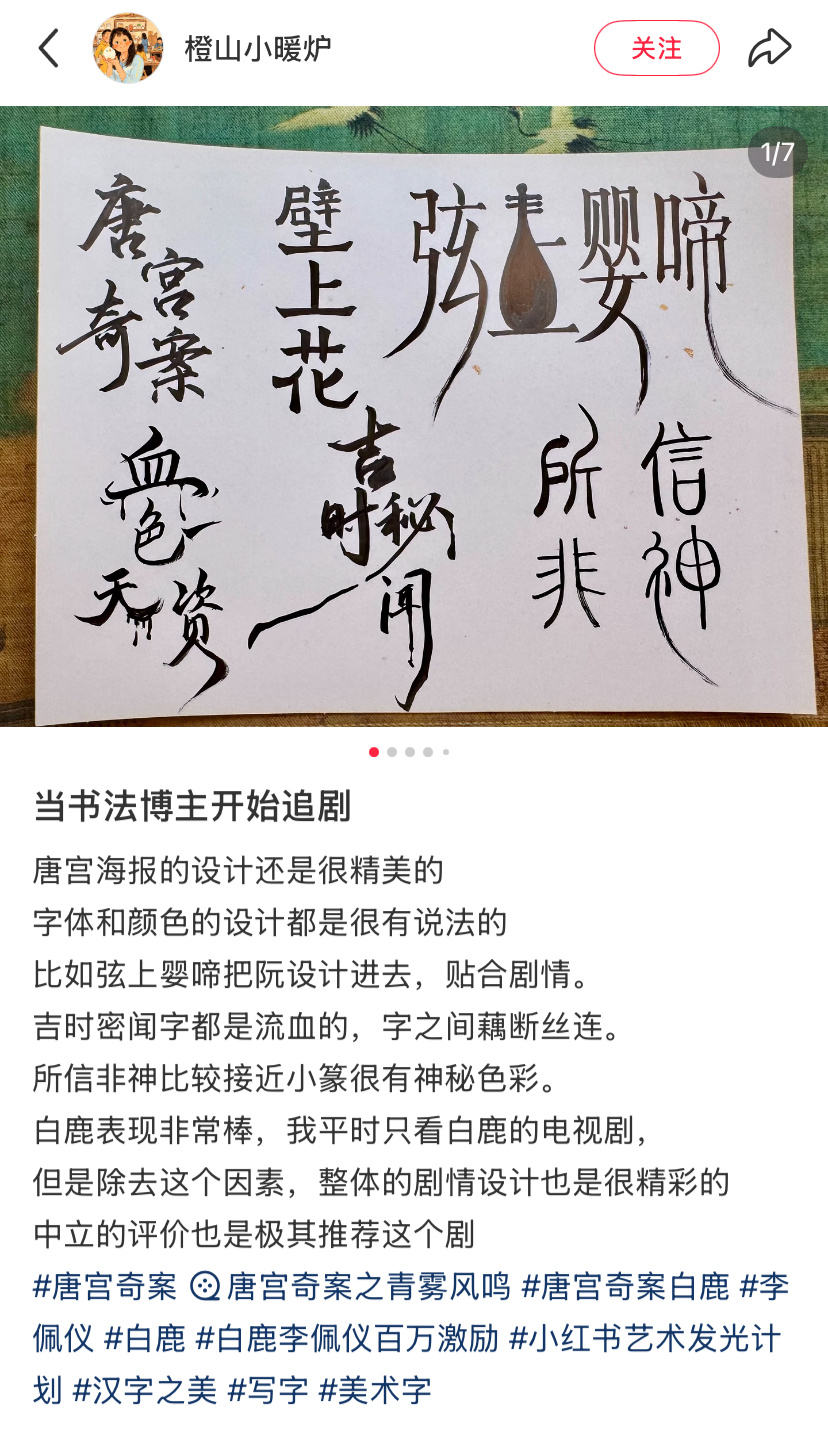 橙山小暖炉
关注
1/7
唐宫奇案
壁上花
弦上婴啼
血色天资
吉时秘闻
所信非神
当书法博主开始追剧
唐宫海报的设计还是很精美的
字体和颜色的设计都是很有说法的
比如弦上婴啼把阮设计进去，贴合剧情。
吉时密闻字都是流血的，字之间藕断丝连。
所信非神比较接近小篆很有神秘色彩。
白鹿表现非常棒，我平时只看白鹿的电视剧，
但是除去这个因素，整体的剧情设计也是很精彩的
中立的评价也是极其推荐这个剧
#唐宫奇案 唐宫奇案之青雾风鸣 #唐宫奇案白鹿 #李
佩仪 #白鹿 #白鹿李佩仪百万激励 #小红书艺术发光计
划 #汉字之美 #写字 #美术字